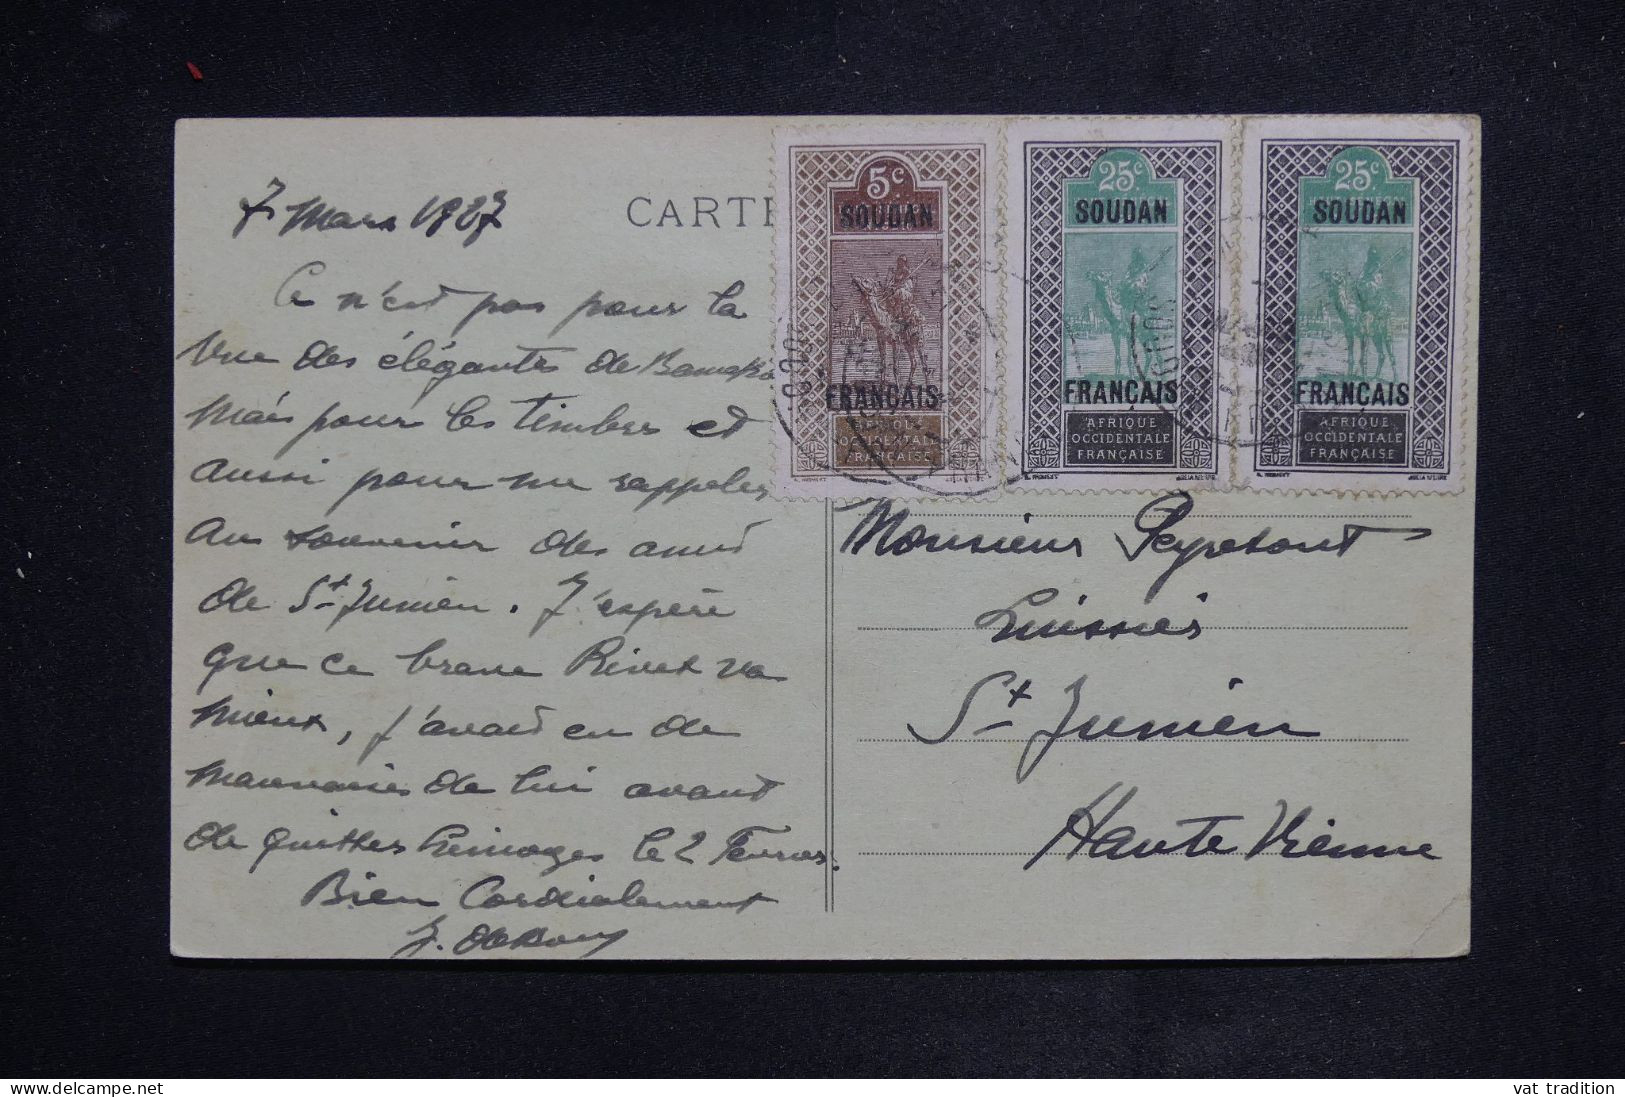 7 Mars 1927
CARTE
Ce n'est pas pour la
vue des élégantes de Bamako
mais pour les timbres et
aussi pour me rappeler
au souvenir des amis
de St Junien. J'espère
que ce brave Rivet va
mieux, j'avais eu de
mauvaises de lui avant
de quitter Limoges le 2 Février.
Bien Cordialement
5c
SOUDAN
FRANÇAIS
AFRIQUE
OCCIDENTALE
FRANÇAISE
25c
SOUDAN
FRANÇAIS
AFRIQUE
OCCIDENTALE
FRANÇAISE
25c
SOUDAN
FRANÇAIS
AFRIQUE
OCCIDENTALE
FRANÇAISE
Monsieur Peyretout
Huissier
St Junien
Haute Vienne
vat tradition